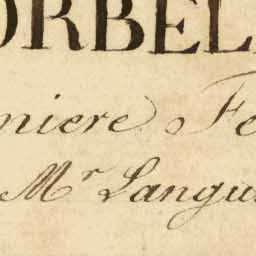 ORBEL
niere Fe
Mr Langu